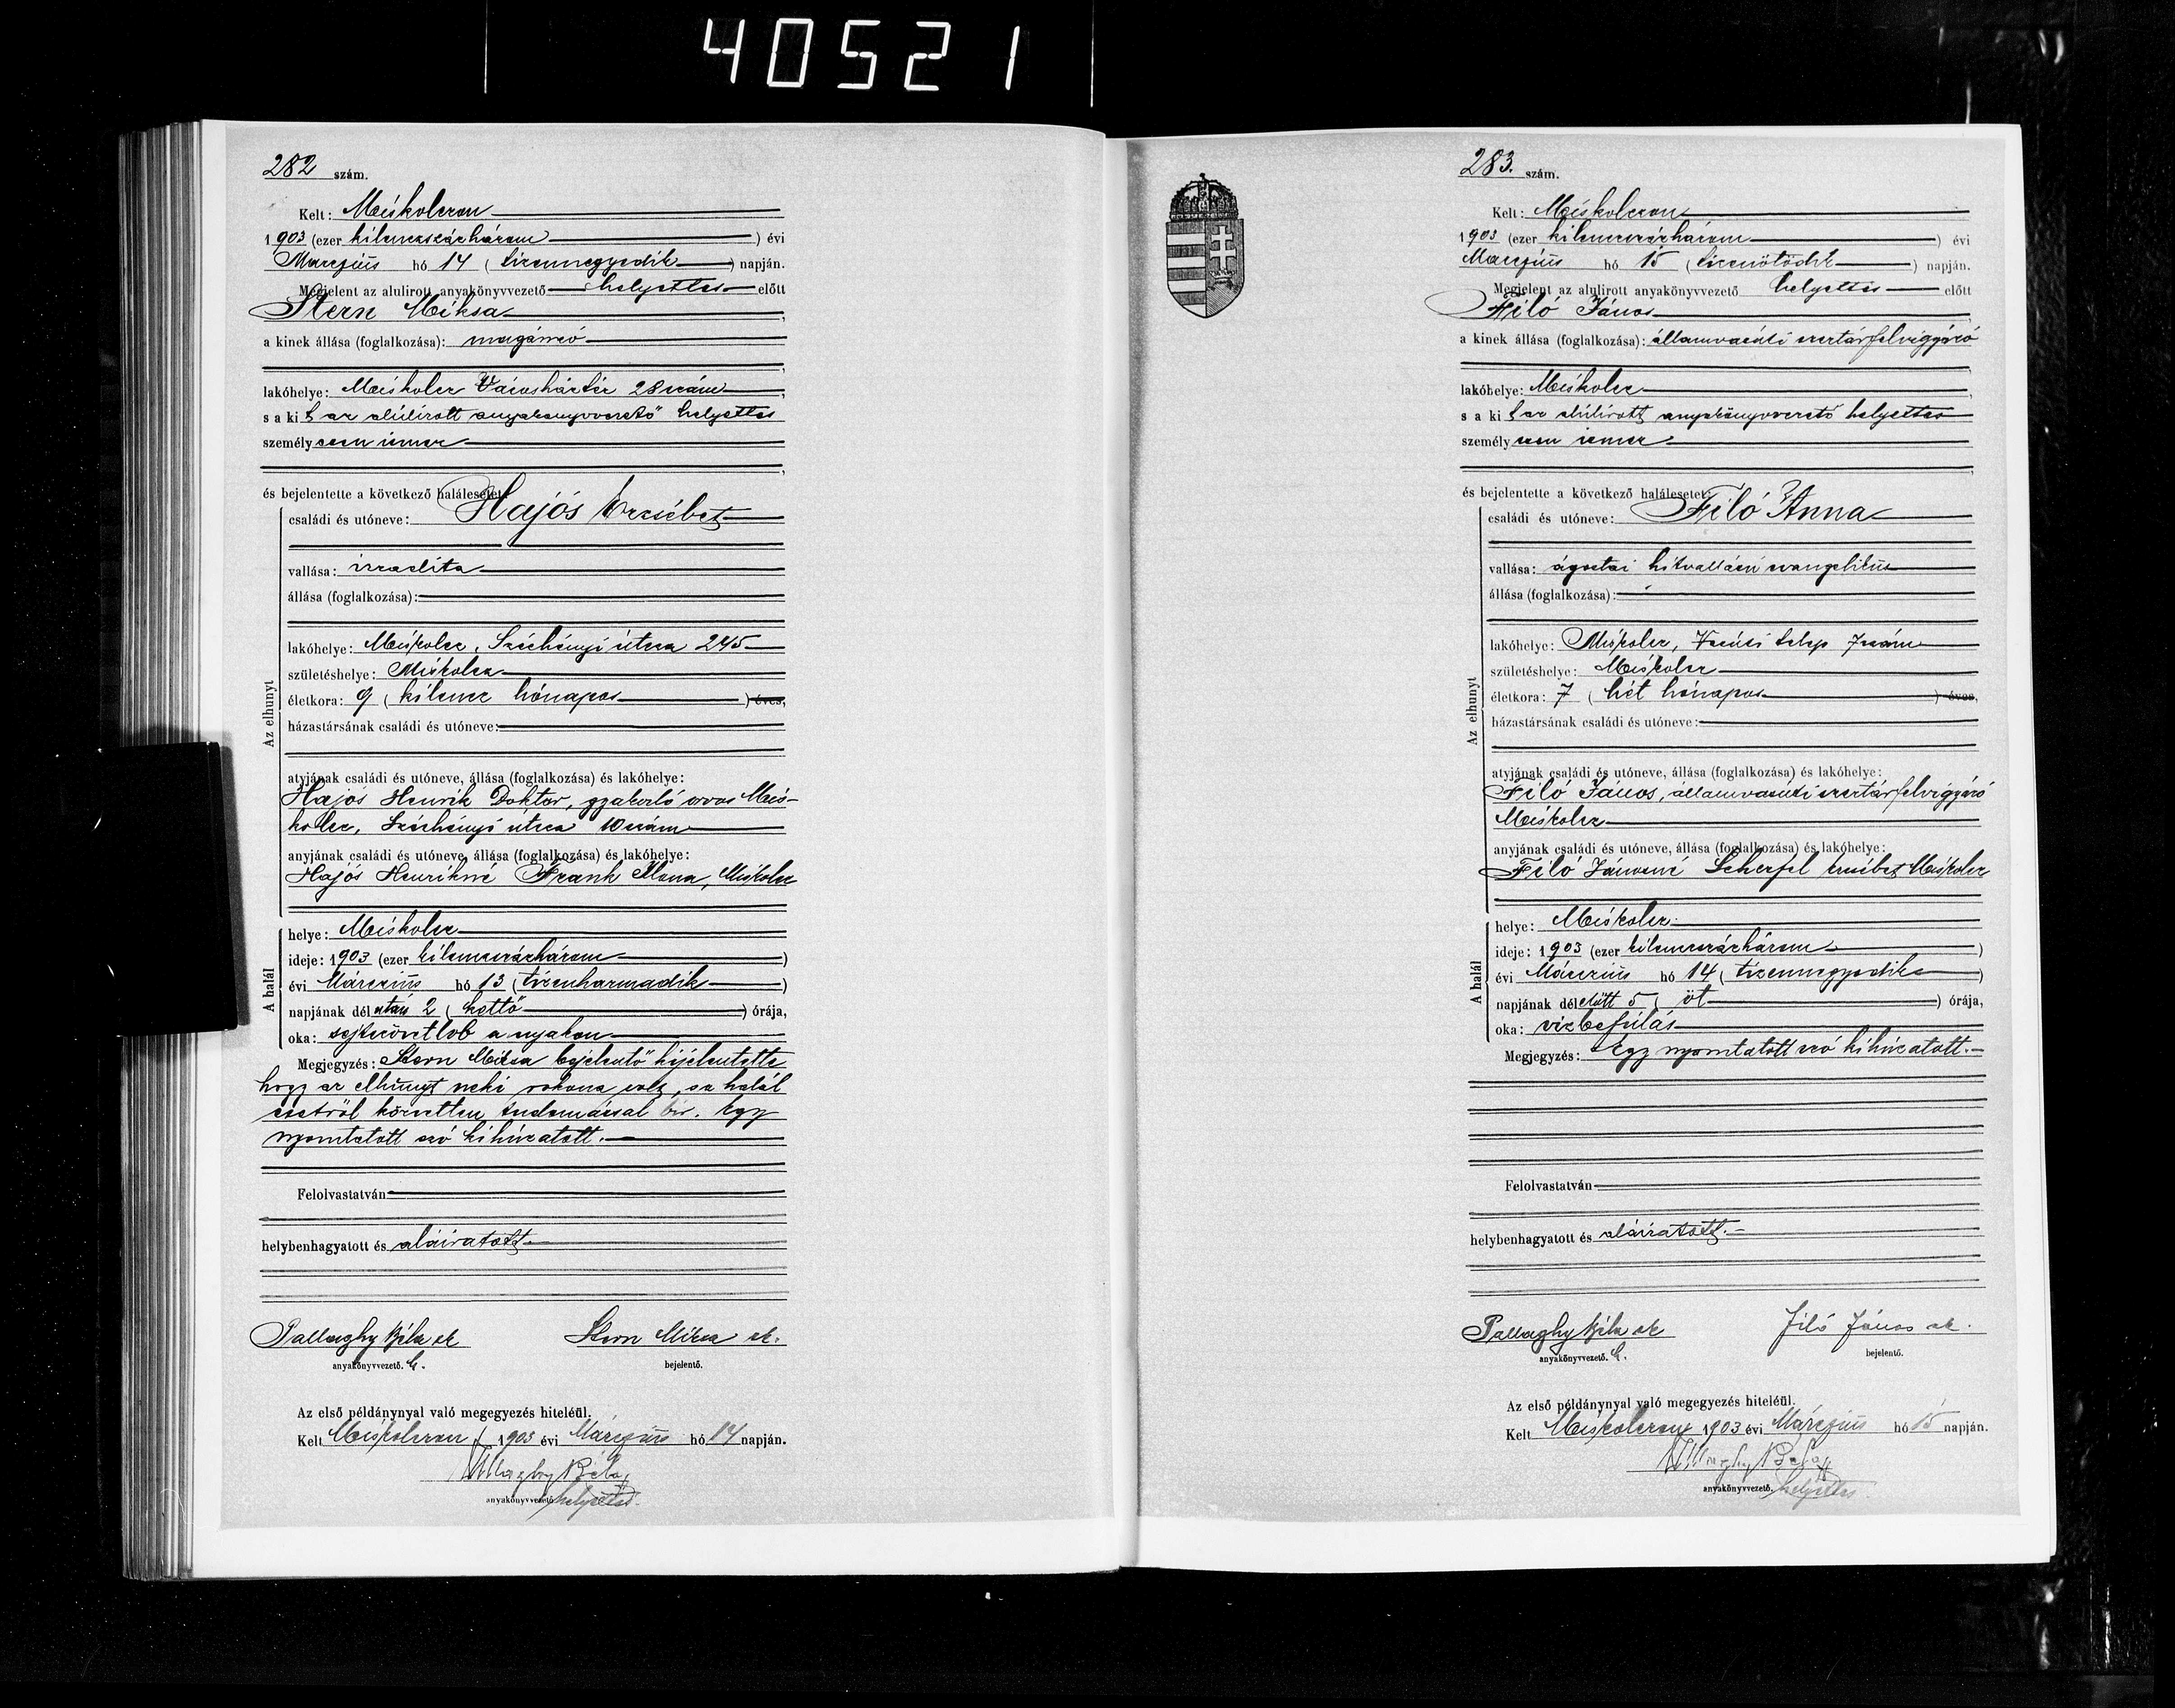 40521
282 szám.
Kelt: Miskolczon
1903 (ezer kilenczszázhárom) évi
Marczius hó 14 (tizennegyedik) napján.
Megjelent az alulirott anyakönyvvezető helyettes előtt
Stern Miksa,
a kinek állása (foglalkozása): magánzó
lakóhelye: Miskolcz Városháztér 28 szám,
s a kit az alúlirott anyakönyvvezető helyettes
személyesen ismer
és bejelentette a következő halálesetet:
Az elhunyt
családi és utóneve: Hajós Erzsébet
vallása: izraelita
állása (foglalkozása):
lakóhelye: Miskolcz, Széchényi útcza 245
születéshelye: Miskolcz
életkora: 9 (kilencz hónapos) éves,
házastársának családi és utóneve:
atyjának családi és utóneve, állása (foglalkozása) és lakóhelye:
Hajós Henrik Doktor, gyakorló orvos Mis-
kolcz, Széchényi útcza 10 szám
anyjának családi és utóneve, állása (foglalkozása) és lakóhelye:
Hajós Henrikné Frank Ilona, Miskolcz
A halál
helye: Miskolcz
ideje: 1903 (ezer kilenczszázhárom)
évi Márczius hó 13 (tizenharmadik)
napjának délután 2 (kettő) órája,
oka: sejtszövetlob a nyakon
Megjegyzés: Stern Miksa bejelentő kijelentette
hogy az elhunyt neki rokona volt, s a halál
esetröl közvetlen tudomással bir. Egy
nyomtatott szó kihúzatott.
Felolvastatván
helybenhagyatott és aláiratott.
Pallaghy Béla sk Stern Miksa sk.
anyakönyvvezető. h. bejelentő.
Az első példánynyal való megegyezés hiteléül.
Kelt Miskolczon, 1903 évi Márczius hó 14 napján.
Pallaghy Béla
anyakönyvvezető helyettes.
283. szám.
Kelt: Miskolczon
1903 (ezer kilenczszázhárom) évi
Marczius hó 15 (tizenötödik) napján.
Megjelent az alulirott anyakönyvvezető helyettes előtt
Filó János,
a kinek állása (foglalkozása): államvasúti szertárfelvigyázó
lakóhelye: Miskolcz,
s a kit az alúlirott anyakönyvvezető helyettes
személyesen ismer
és bejelentette a következő halálesetet:
Az elhunyt
családi és utóneve: Filó Anna
vallása: ágostai hitvallású evangelikus
állása (foglalkozása):
lakóhelye: Miskolcz, Vasúti telep 7 szám
születéshelye: Miskolcz
életkora: 7 (hét hónapos) éves,
házastársának családi és utóneve:
atyjának családi és utóneve, állása (foglalkozása) és lakóhelye:
Filó János, államvasúti szertárfelvigyázó
Miskolcz
anyjának családi és utóneve, állása (foglalkozása) és lakóhelye:
Filó Jánosné Scherfel Erzsébet Miskolcz
A halál
helye: Miskolcz
ideje: 1903 (ezer kilenczszázhárom)
évi Márczius hó 14 (tizennegyedike)
napjának délelőtt 5 (öt) órája,
oka: vizbefúlás
Megjegyzés: Egy nyomtatott szó kihúzatott.
Felolvastatván
helybenhagyatott és aláiratott.
Pallaghy Béla sk Filó János sk.
anyakönyvvezető. h. bejelentő.
Az első példánynyal való megegyezés hiteléül.
Kelt Miskolczon, 1903 évi Márczius hó 15 napján.
Pallaghy Béla
anyakönyvvezető. helyettes.